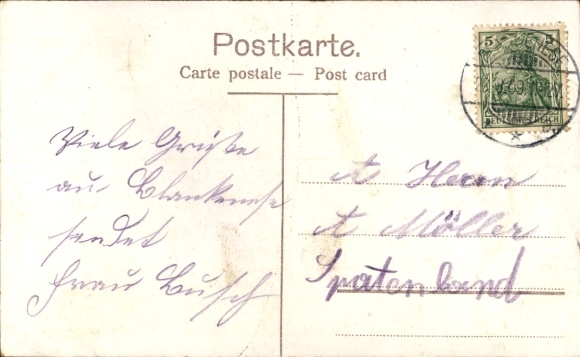 Postkarte.
Carte postale — Post card
5 5
DEUTSCHES REICH
Viele Grüße
aus Blankenese
sendet
Frau Busch
A Herrn
A Möller
Spatenland